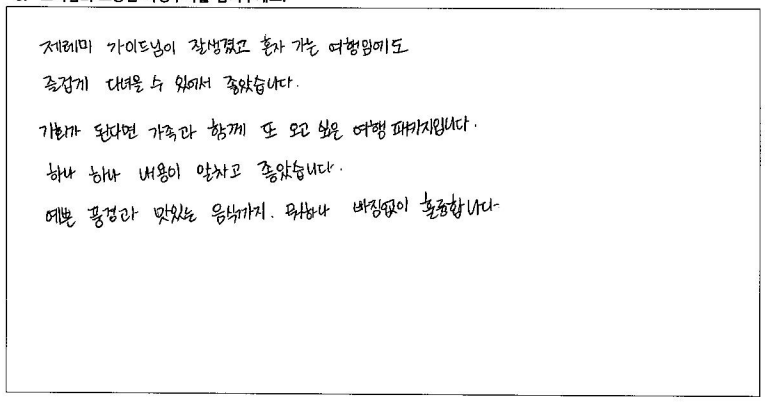 제레미 가이드님이 잘생겼고 혼자 가는 여행임에도
즐겁게 다녀올 수 있어서 좋았습니다.
기회가 된다면 가족과 함께 또 오고 싶은 여행 패키지입니다.
하나 하나 내용이 알차고 좋았습니다.
예쁜 풍경과 맛있는 음식까지. 뭐하나 빠짐없이 훌륭합니다